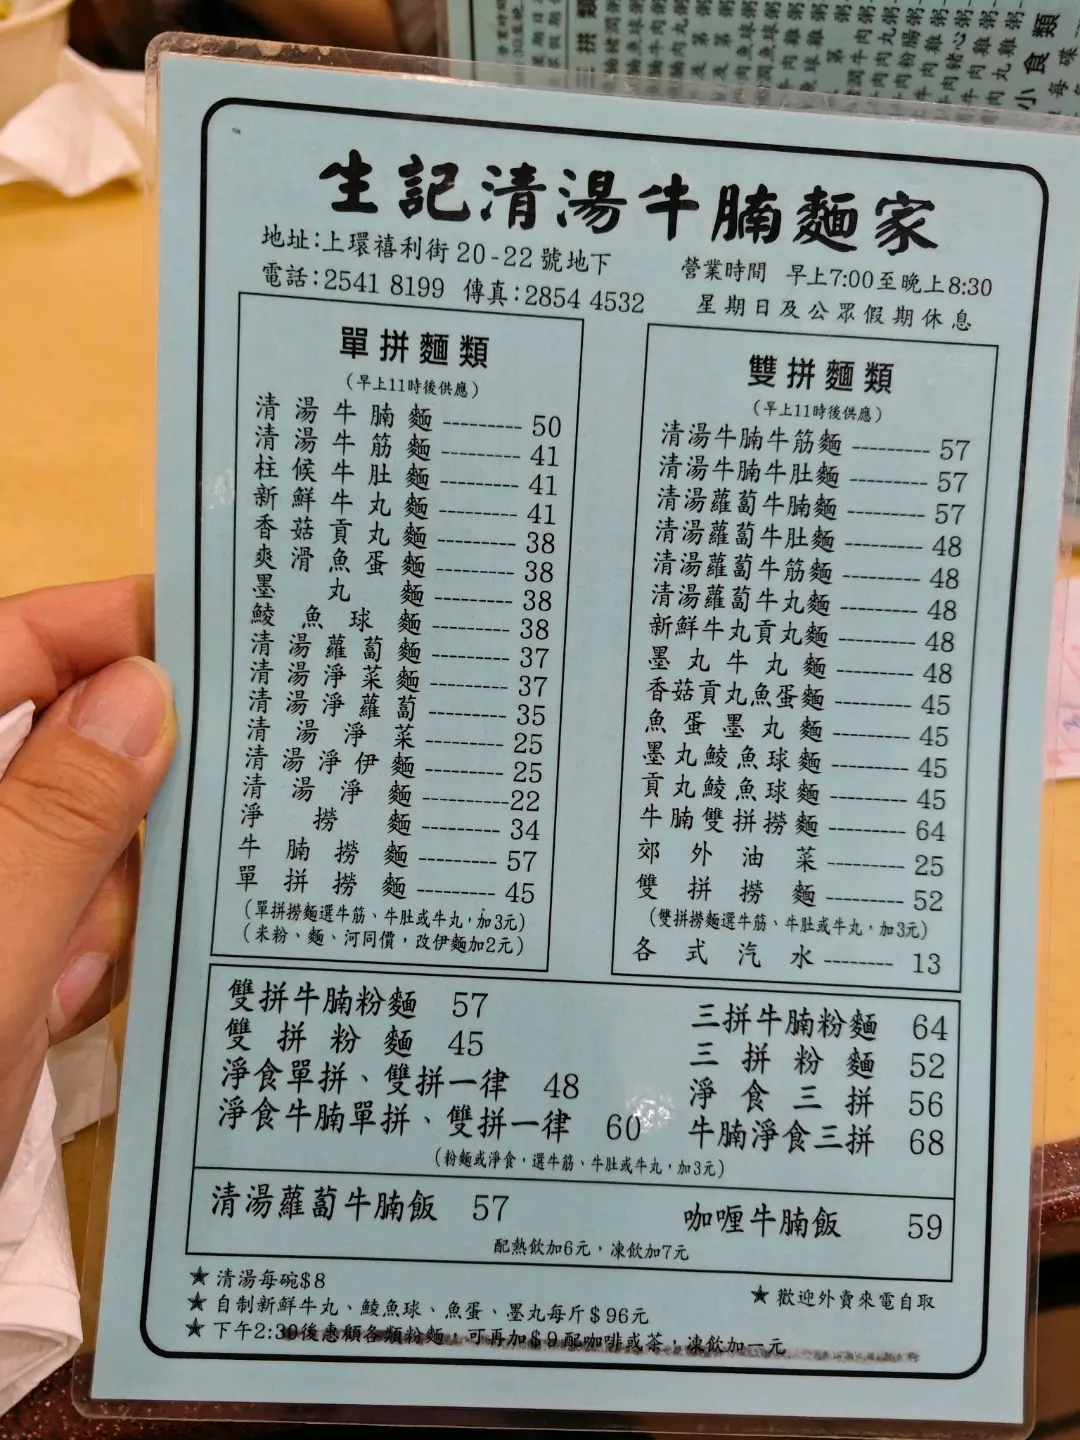 生記清湯牛腩麵家
地址:上環禧利街20-22號地下
電話:2541 8199 傳真:2854 4532
營業時間 早上7:00至晚上8:30
星期日及公眾假期休息
單拼麵類
(早上11時後供應)
清湯牛腩麵 --------- 50
清湯牛筋麵 --------- 41
柱候牛肚麵 --------- 41
新鮮牛丸麵 --------- 41
香菇貢丸麵 --------- 38
爽滑魚蛋麵 --------- 38
墨丸麵 --------- 38
鯪魚球麵 --------- 38
清湯蘿蔔麵 --------- 37
清湯淨菜麵 --------- 37
清湯淨蘿蔔 --------- 35
清湯淨菜 --------- 25
清湯淨伊麵 --------- 25
清湯淨麵 ---------22
淨撈麵 --------- 34
牛腩撈麵 --------- 57
單拼撈麵 --------- 45
(單拼撈麵選牛筋、牛肚或牛丸,加3元)
(米粉、麵、河同價,改伊麵加2元)
雙拼麵類
(早上11時後供應)
清湯牛腩牛筋麵 --------- 57
清湯牛腩牛肚麵 --------- 57
清湯蘿蔔牛腩麵 --------- 57
清湯蘿蔔牛肚麵 --------- 48
清湯蘿蔔牛筋麵 --------- 48
清湯蘿蔔牛丸麵 --------- 48
新鮮牛丸貢丸麵 --------- 48
墨丸牛丸麵 --------- 48
香菇貢丸魚蛋麵 --------- 45
魚蛋墨丸麵 --------- 45
墨丸鯪魚球麵 --------- 45
貢丸鯪魚球麵 --------- 45
牛腩雙拼撈麵 --------- 64
郊外油菜 --------- 25
雙拼撈麵 --------- 52
(雙拼撈麵選牛筋、牛肚或牛丸,加3元)
各式汽水 -------- 13
雙拼牛腩粉麵 57
雙拼粉麵 45
淨食單拼、雙拼一律 48
淨食牛腩單拼、雙拼一律 60
三拼牛腩粉麵 64
三拼粉麵 52
淨食三拼 56
牛腩淨食三拼 68
(粉麵或淨食,選牛筋、牛肚或牛丸,加3元)
清湯蘿蔔牛腩飯 57
咖喱牛腩飯 59
配熱飲加6元,凍飲加7元
★清湯每碗$8
★自制新鮮牛丸、鯪魚球、魚蛋、墨丸每斤$96元
★下午2:30後惠顧各類粉麵,可再加$9配咖啡或茶,凍飲加一元
★歡迎外賣來電自取
小食類